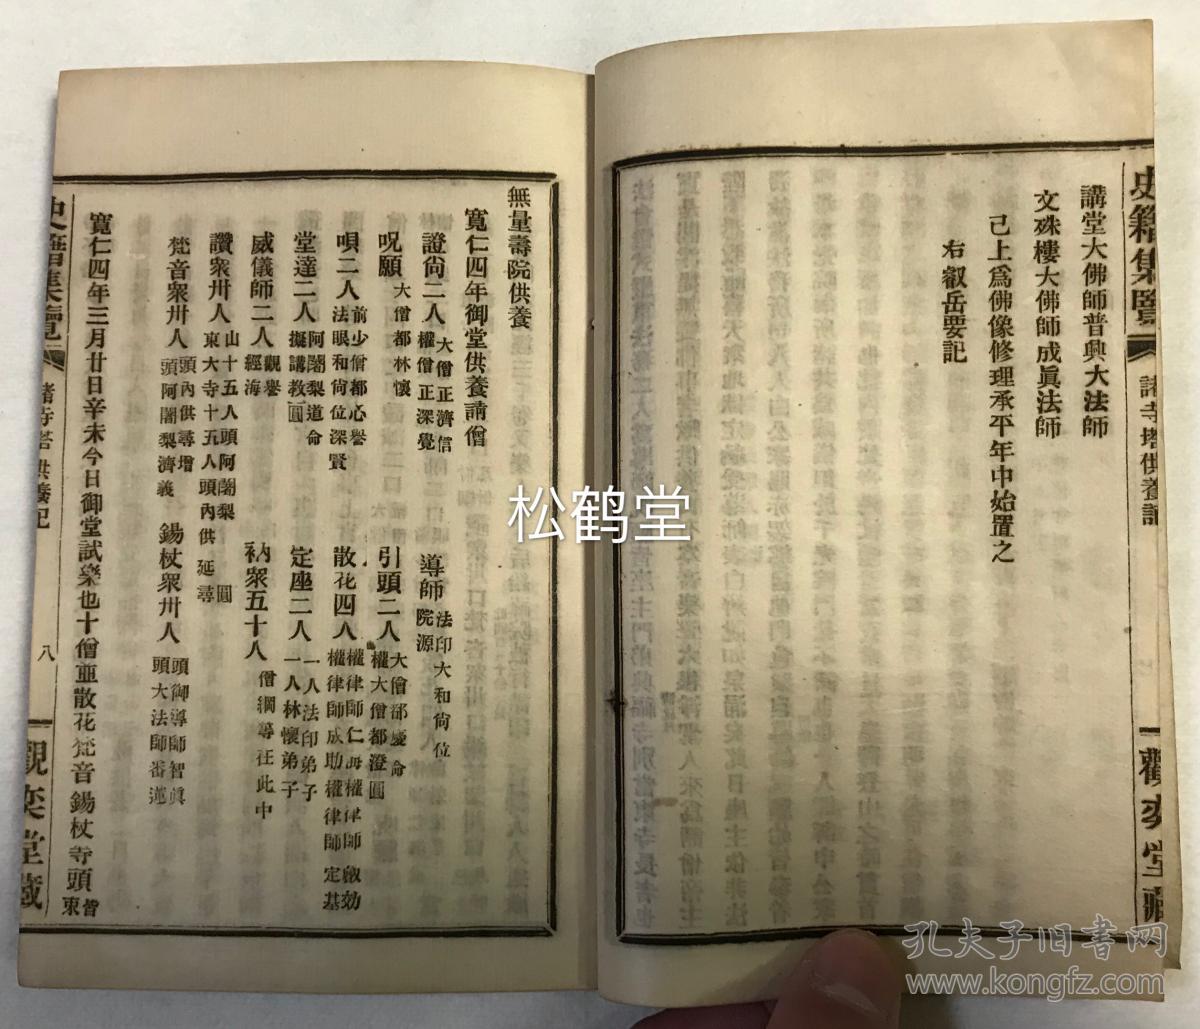 史籍集覽
諸寺塔供養記
觀奕堂藏
講堂大佛師普興大法師
文殊樓大佛師成眞法師
已上爲佛像修理承平年中始置之
右叡岳要記
無量壽院供養
寬仁四年御堂供養請僧
證尚二人 大僧正濟信 權僧正深覺 導師 法印大和尚位 院源
呪願 大僧都林懷 引頭二人 大僧都慶命 權大僧都澄圓
唄二人 前少僧都心譽 法眼和尚位深賢 散花四人 權律師仁 權律師
權律師成助 權律師定基
堂達二人 阿闍梨道命 擬講教圓 定座二人 一人法印弟子 一人林懷弟子
威儀師二人 觀譽 經海 衲衆五十人 僧綱等在此中
讚衆卅人 山十五人頭阿闍梨 圓 東大寺十五人頭內供 延尋
梵音衆卅人 頭內供尋增 頭阿闍梨濟義 錫杖衆卅人 頭御導師智眞 頭大法師蕃蓮
寬仁四年三月廿日辛未今日御堂試樂也十僧並散花梵音錫杖等頭 皆 東
史籍集覽
諸寺塔供養記
八
觀奕堂藏
松鹤堂
孔夫子旧书网
www.kongfz.com